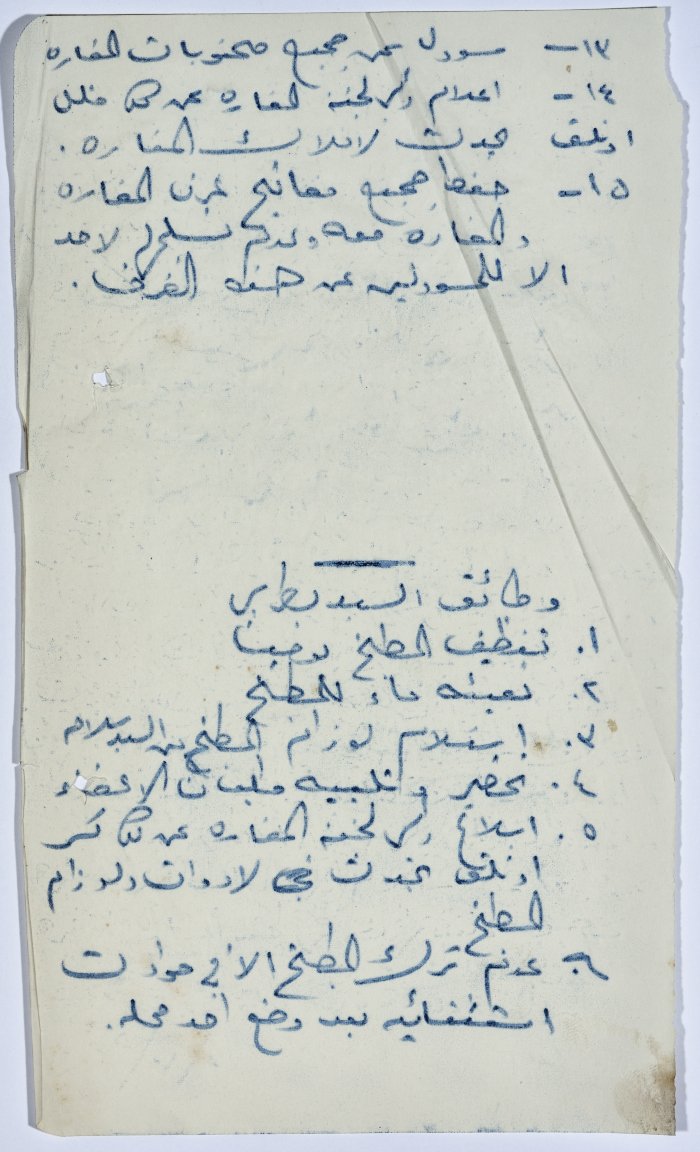 ١٣- مسوول عن جميع محتويات المغاره
١٤- اعلام رئس لجنة المغاره عن كل خلل
او تلف يحدث لاملاك المغاره .
١٥- حفظ جميع مفاتيح غرف المغاره
والمغاره معه وعدم تسليمها لاحد
الا للمسوولين عن هذه الغرف .
وظائف السيد بطرس
١. تنظيف المطبخ يوميا
٢. تعبئه ماء للمطبخ
٣. إستلام لوزام المطبخ من السيد سلامه
٤. تحضير وتلبيه طلبات الاعضاء
٥. ابلاغ رئس لجنة المغاره عن كل كسر
او تلف يحدث في لادوات ولوزام
المطبخ
٦. عدم ترك المطبخ الا في حوادث
استثنائيه بعد وضع احد محله .